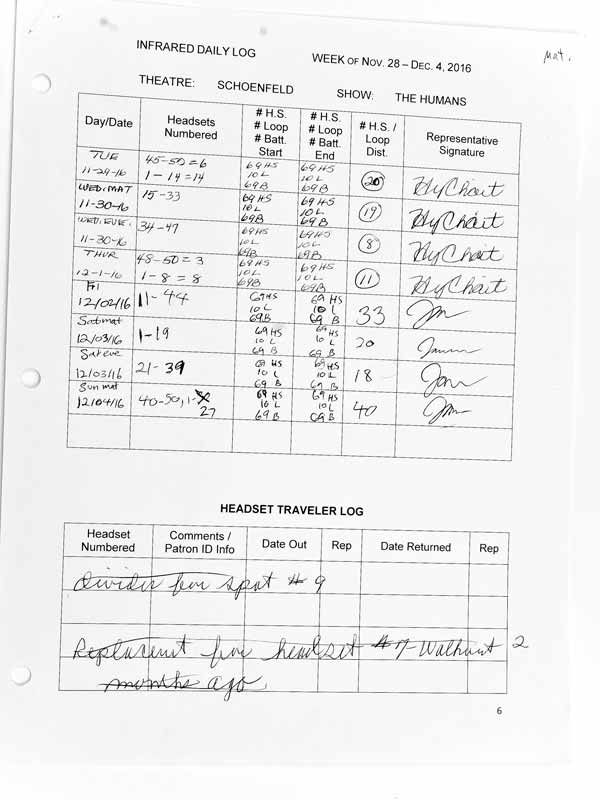 INFRARED DAILY LOG
WEEK OF NOV. 28 – DEC. 4, 2016
Mat.
THEATRE: SCHOENFELD SHOW: THE HUMANS
Day/Date
Headsets Numbered
# H.S. # Loop # Batt. Start
# H.S. # Loop # Batt. End
# H.S. / Loop Dist.
Representative Signature
TUE 11-29-16
45-50=6
1-14=14
69HS 10L 69B
69HS 10L 69B
20
WED. MAT 11-30-16
15-33
69HS 10L 69B
69HS 10L 69B
19
WED. EVE. 11-30-16
34-47
69HS 10L 69B
69HS 10L 69B
8
THUR 12-1-16
48-50=3
1-8=8
69HS 10L 69B
69HS 10L 69B
11
Fri 12/02/16
11-44
69HS 10L 69B
69HS 10L 69B
33
Sat mat 12/03/16
1-19
69HS 10L 69B
69HS 10L 69B
20
Sat eve 12/03/16
21-39
69HS 10L 69B
69HS 10L 69B
18
Sun mat 12/04/16
40-50, 1-
27
69HS 10L 69B
69HS 10L 69B
40
HEADSET TRAVELER LOG
Headset Numbered
Comments / Patron ID Info
Date Out
Rep
Date Returned
Rep
divider for spot # 9
Replacement for headset #7-Walkout 2
months ago
6